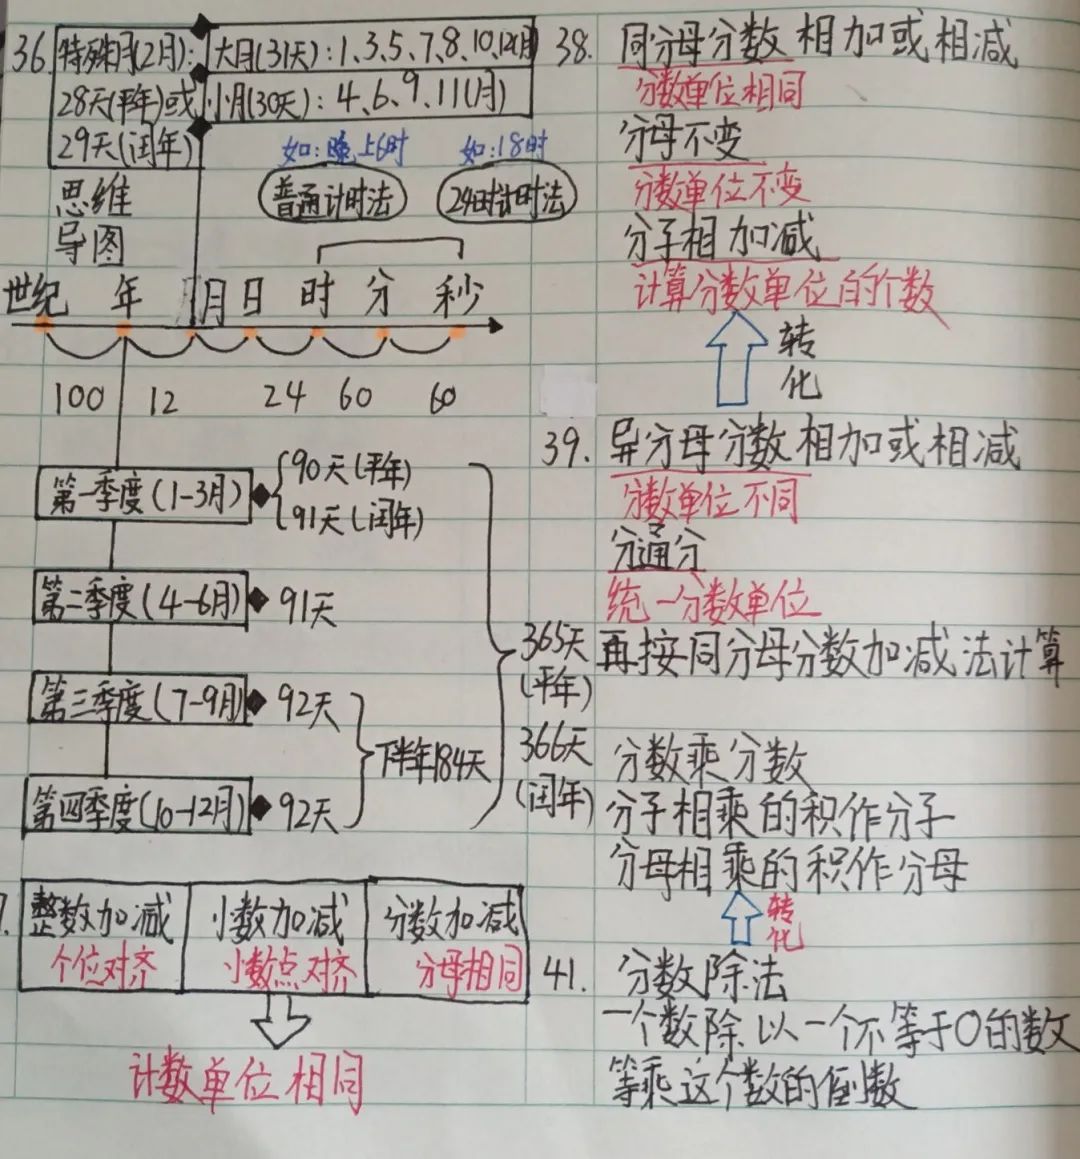 36.
特殊月(2月):
28天(平年)或
29天(闰年)
大月(31天):1、3、5、7、8、10、12(月)
小月(30天):4、6、9、11(月)
如:晚上6时
如:18时
普通计时法
24时计时法
思维
导图
世纪 年 月 日 时 分 秒
100 12 24 60 60
第一季度(1-3月)
90天(平年)
91天(闰年)
第二季度(4-6月)
91天
第三季度(7-9月)
92天
第四季度(10-12月)
92天
下半年184天
365天
(平年)
366天
(闰年)
整数加减
个位对齐
小数加减
小数点对齐
分数加减
分母相同
计数单位相同
38. 同分母分数相加或相减
分数单位相同
分母不变
分数单位不变
分子相加减
计算分数单位的个数
转
化
39. 异分母分数相加或相减
分数单位不同
分通分
统一分数单位
再按同分母分数加减法计算
分数乘分数
分子相乘的积作分子
分母相乘的积作分母
转
化
41. 分数除法
一个数除以一个不等于0的数
等乘这个数的倒数